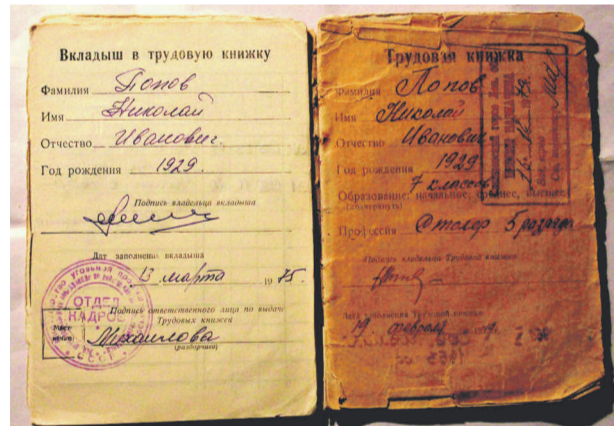 Вкладыш в трудовую книжку
Фамилия Попов
Имя Николай
Отчество Иванович.
Год рождения 1929.
Подпись владельца вкладыша
Дат заполнения вкладыша
13 марта 1975.
ОТДЕЛ
КАДРОВ
СССР
Подпись ответственного лица по выдаче
Трудовых книжек
Михайлова
(разборчиво)
Трудовая книжка
Фамилия Попов
Имя Николай
Отчество Иванович
Год рождения 1929
7 классов
Образование: начальное, среднее, высшее
(подчеркнуть)
Профессия Столяр 5 разряда
Подпись владельца Трудовой книжки
Дата заполнения Трудовой книжки
19 февраля